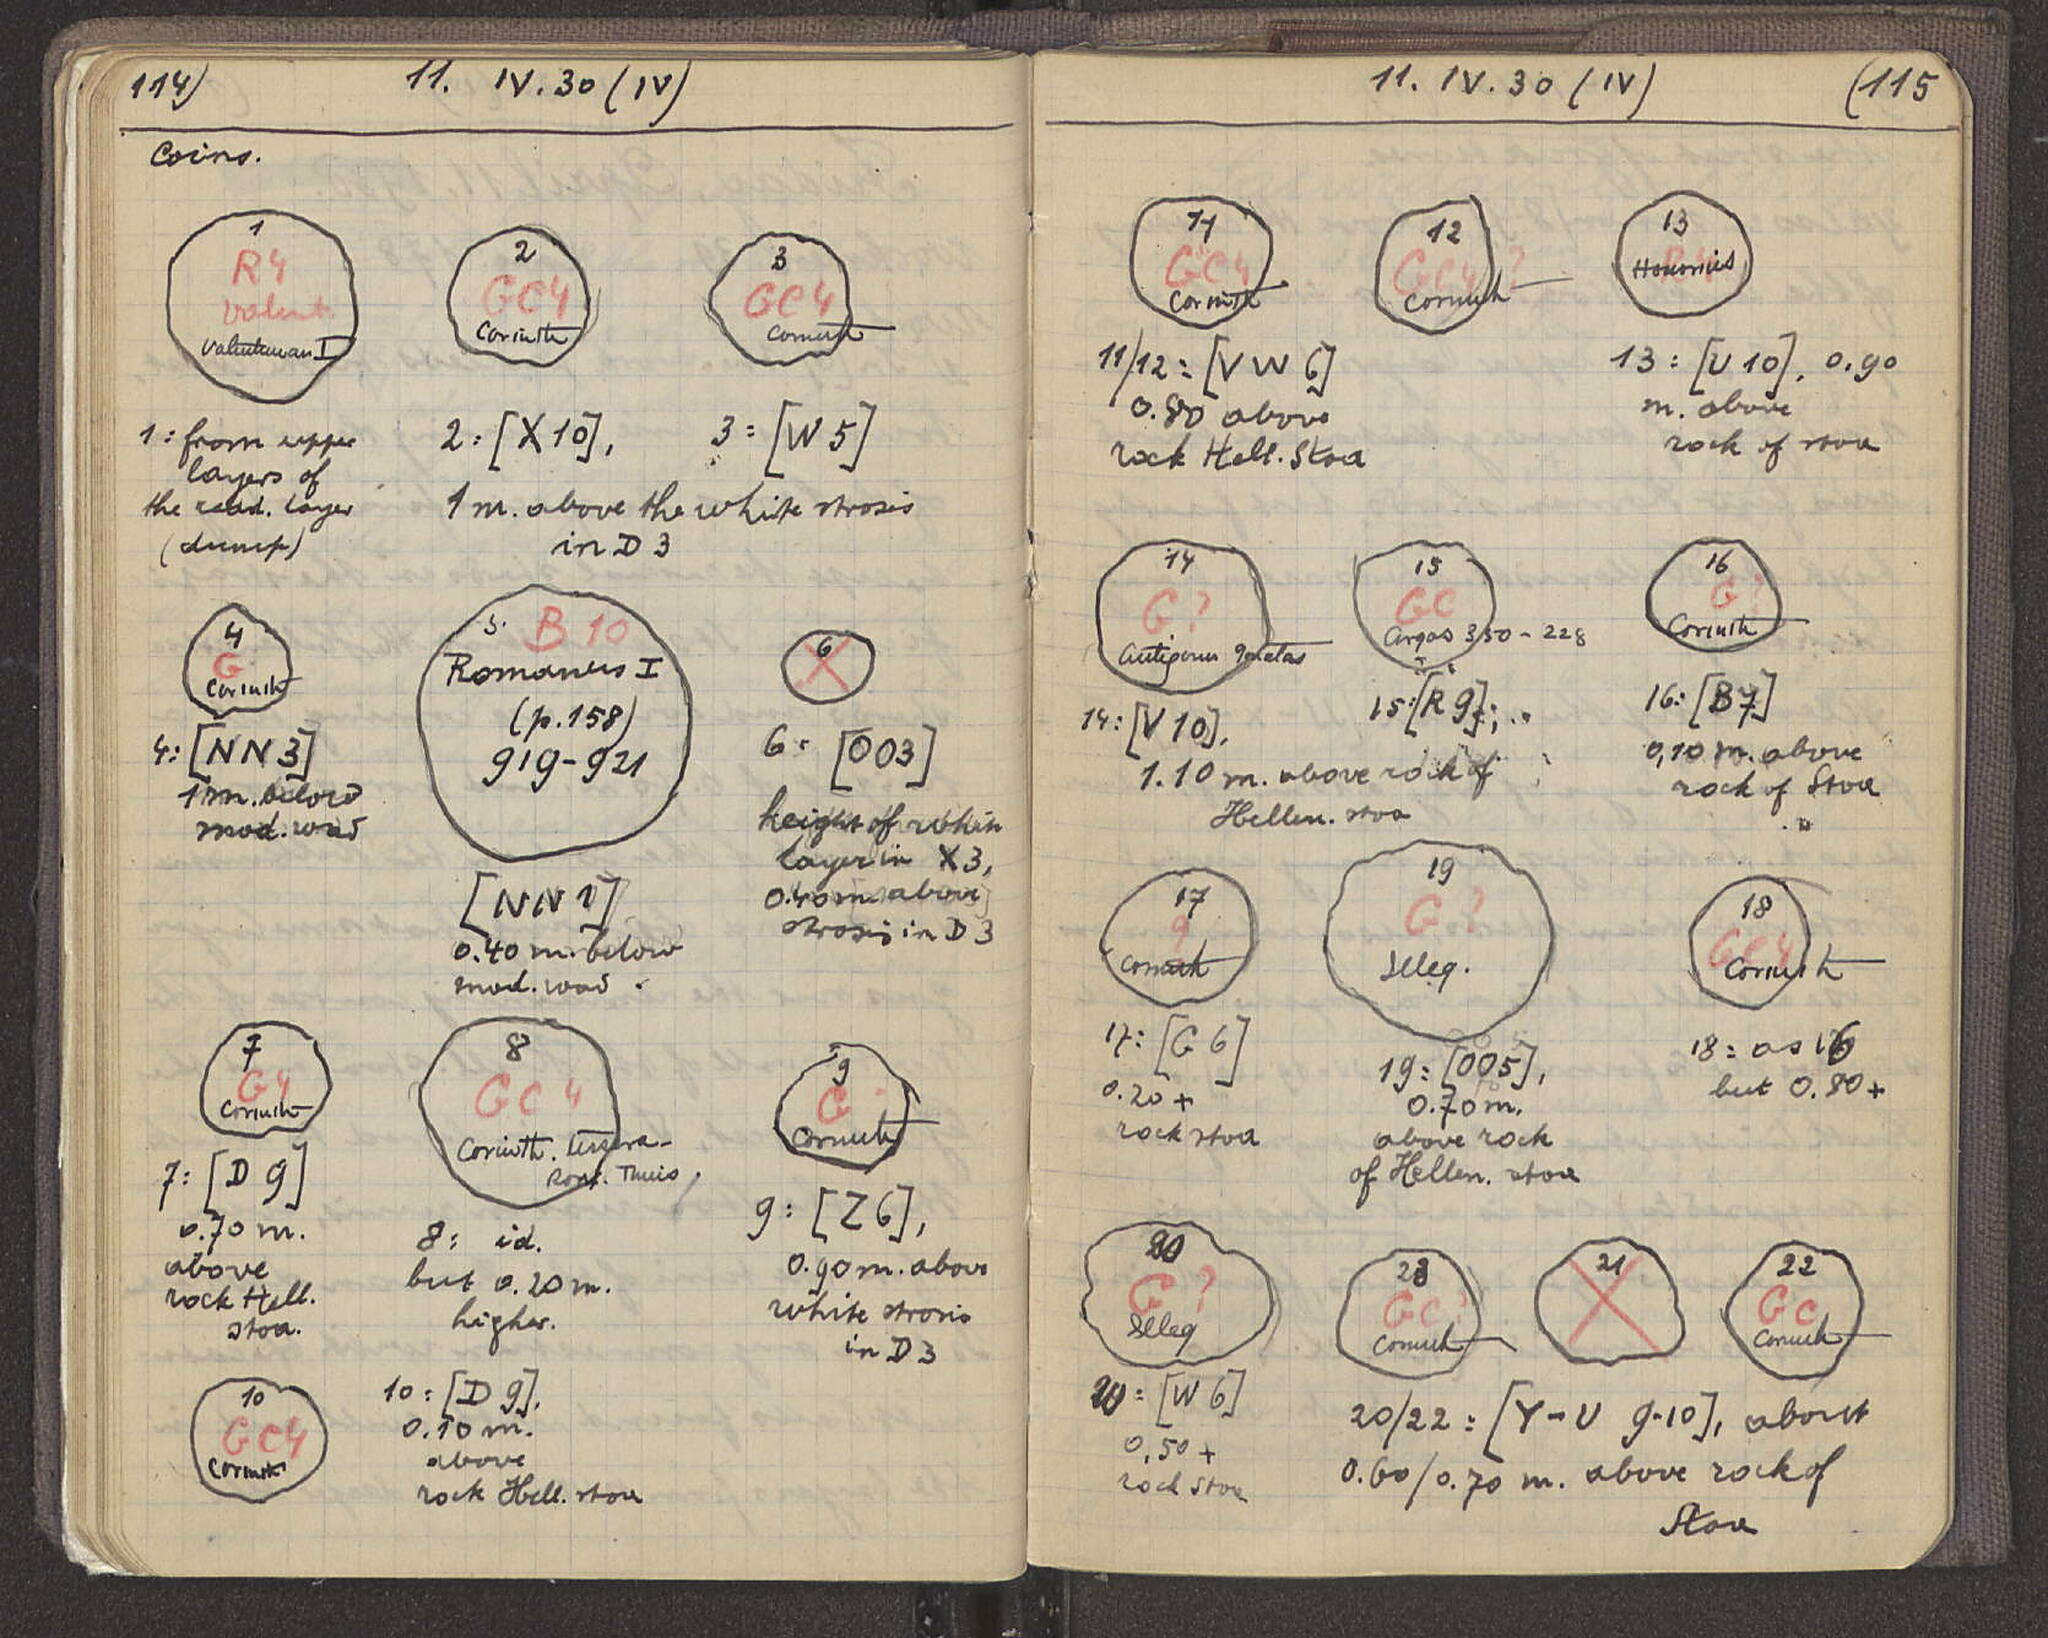 114)
11. IV. 30 (IV)
Coins.
1
R4
Valent.
Valentinian I
2
GC4
Corinth
3
GC4
Corinth
1: from upper
layers of
the layer
(dump)
2: [X 10],
3: [W 5]
1 m. above the white strosis
in D 3
4
G
Corinth
4: [NN 3]
1 m. below
mod. road
5.
B 10
Romanus I
(p. 158)
919-921
[NN 1]
0.40 m. below
mod. road
6
6: [OO3]
height of white
layer in X 3,
0.40 m. above
strosis in D 3
7
G4
Corinth
7: [D 9]
0.70 m.
above
rock Hell.
stoa.
8
GC 4
Corinth. Tessera-
8: id.
but 0.20 m.
higher.
9
G
Corinth
9: [Z 6],
0.90 m. above
white strosis
in D 3
10
GC4
Corinth
10: [D 9],
0.10 m.
above
rock Hell. stoa
11. IV. 30 (IV)
(115
11
GC4
Corinth
12
GC4?
Corinth
13
Honorius
11/12 = [V W 6]
0.80 above
rock Hell. Stoa
13: [U 10], 0.90
m. above
rock of stoa
14
G?
Antigonus Gonatas
15
GC
Argos 350-228
16
G?
Corinth
14: [V 10],
1.10 m. above rock of
Hellen. stoa
15: [R 9];
16: [B 7]
0,10 m. above
rock of Stoa
17
Corinth
19
G?
Seleq.
18
GC4
Corinth
17: [G 6]
0.20 +
rock stoa
19: [OO5],
0.70 m.
above rock
of Hellen. stoa
18: as 16
but 0.80 +
20
G?
Seleq
23
GC?
Corinth
21
22
GC
Corinth
20: [W 6]
0,50 +
rock Stoa
20/22 = [Y-U 9-10], about
0.60/0.70 m. above rock of
Stoa